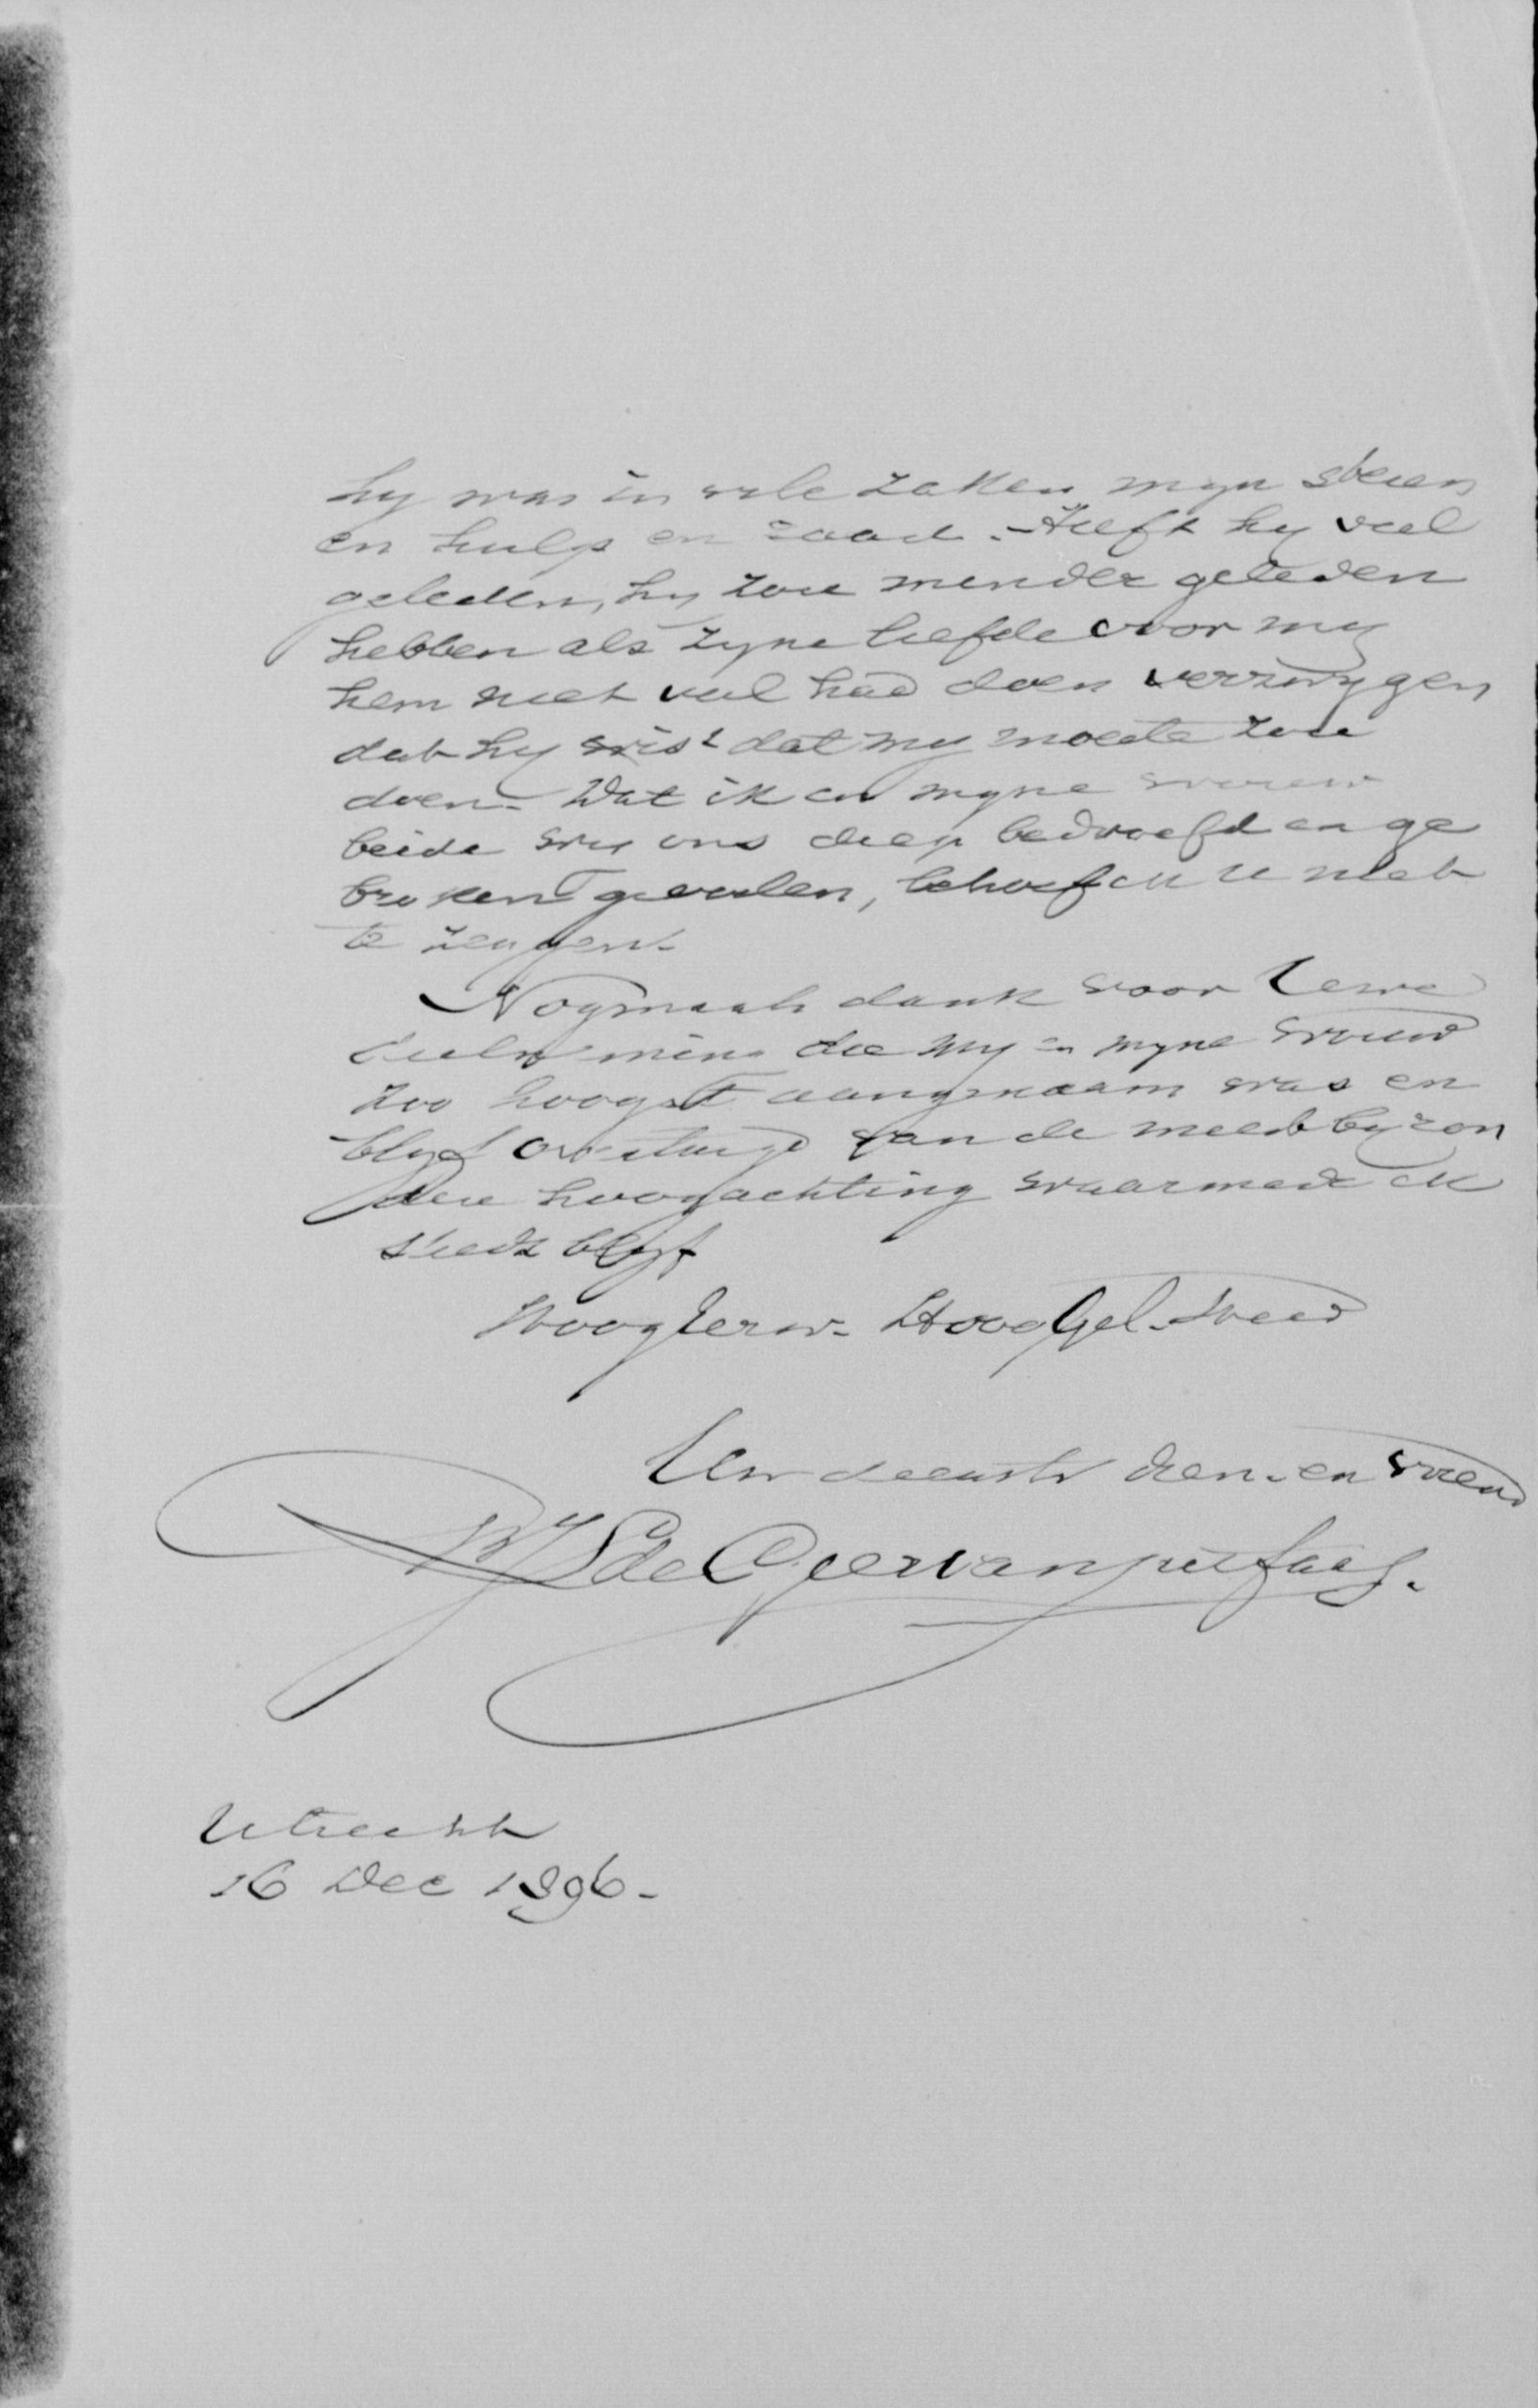 hy was in vele zaken myn steun
en hulp en raad. - Heeft hy veel
geleden, hy zou minder geleden
hebben als zyne liefde voor my
hem niet veel had doen verzwygen
dat hy wist dat my moeite zou
doen - Wat ik en myne vrouw
beide wy ons diep bedroefd en ge
broken gevoelen, behoef ik U niet
te zeggen.
Nogmaals dank voor Uwe
deelneming die my en myne vrouw
zoo hoogst aangenaam was en
blyf overtuigd van de meest byzon
dere hoogachting waarmede ik
steeds blyf
HoogEerw. HoogGel. Heer
Uw dien. en vriend
de Geer van Jutfaas.
Utrecht
16 Dec 1896 -